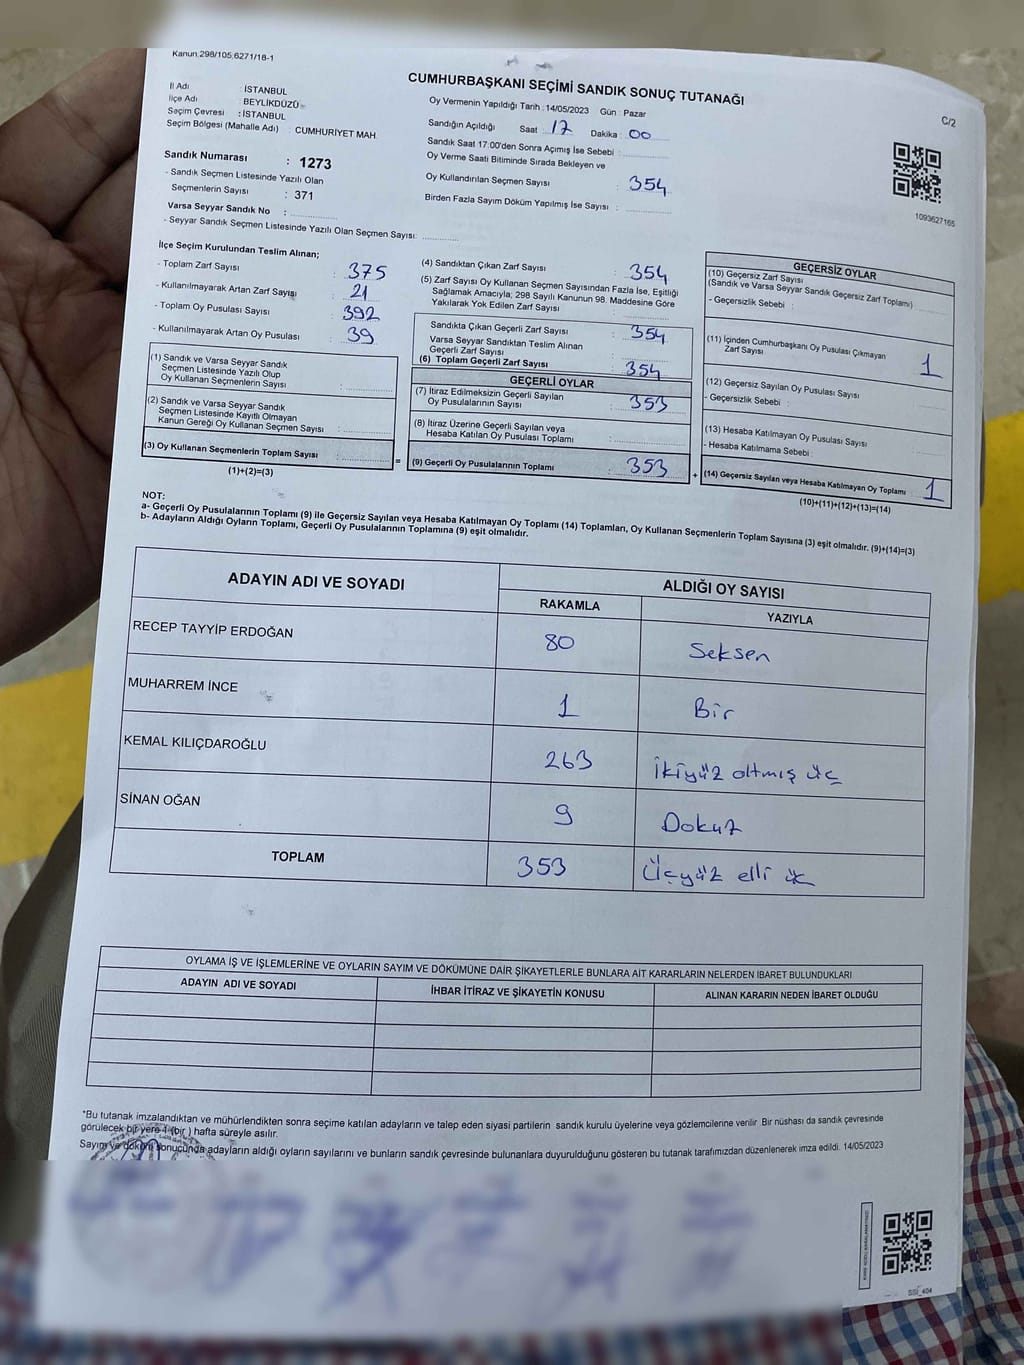 Kanun:298/105;6271/18-1
CUMHURBAŞKANI SEÇİMİ SANDIK SONUÇ TUTANAĞI
C/2
İl Adı : İSTANBUL
İlçe Adı : BEYLİKDÜZÜ
Seçim Çevresi : İSTANBUL
Seçim Bölgesi (Mahalle Adı) : CUMHURİYET MAH.
Oy Vermenin Yapıldığı Tarih : 14/05/2023 Gün : Pazar
Sandığın Açıldığı Saat : 17 Dakika : 00
Sandık Saat 17:00'den Sonra Açımış İse Sebebi :
Oy Verme Saati Bitiminde Sırada Bekleyen ve
Oy Kullandırılan Seçmen Sayısı : 354
Birden Fazla Sayım Döküm Yapılmış İse Sayısı :
1093627165
Sandık Numarası : 1273
- Sandık Seçmen Listesinde Yazılı Olan
Seçmenlerin Sayısı : 371
Varsa Seyyar Sandık No :
- Seyyar Sandık Seçmen Listesinde Yazılı Olan Seçmen Sayısı:
İlçe Seçim Kurulundan Teslim Alınan;
- Toplam Zarf Sayısı : 375
- Kullanılmayarak Artan Zarf Sayısı : 21
- Toplam Oy Pusulası Sayısı : 392
- Kullanılmayarak Artan Oy Pusulası : 39
(1) Sandık ve Varsa Seyyar Sandık
Seçmen Listesinde Yazılı Olup
Oy Kullanan Seçmenlerin Sayısı :
(2) Sandık ve Varsa Seyyar Sandık
Seçmen Listesinde Kayıtlı Olmayan
Kanun Gereği Oy Kullanan Seçmen Sayısı :
(3) Oy Kullanan Seçmenlerin Toplam Sayısı :
(1)+(2)=(3)
=
(4) Sandıktan Çıkan Zarf Sayısı : 354
(5) Zarf Sayısı Oy Kullanan Seçmen Sayısından Fazla İse, Eşitliği
Sağlamak Amacıyla; 298 Sayılı Kanunun 98. Maddesine Göre
Yakılarak Yok Edilen Zarf Sayısı :
Sandıkta Çıkan Geçerli Zarf Sayısı : 354
Varsa Seyyar Sandıktan Teslim Alınan
Geçerli Zarf Sayısı :
(6) Toplam Geçerli Zarf Sayısı : 354
GEÇERLİ OYLAR
(7) İtiraz Edilmeksizin Geçerli Sayılan
Oy Pusulalarının Sayısı : 353
(8) İtiraz Üzerine Geçerli Sayılan veya
Hesaba Katılan Oy Pusulası Toplamı :
(9) Geçerli Oy Pusulalarının Toplamı : 353
+
GEÇERSİZ OYLAR
(10) Geçersiz Zarf Sayısı
(Sandık ve Varsa Seyyar Sandık Geçersiz Zarf Toplamı) :
- Geçersizlik Sebebi :
(11) İçinden Cumhurbaşkanı Oy Pusulası Çıkmayan
Zarf Sayısı : 1
(12) Geçersiz Sayılan Oy Pusulası Sayısı :
- Geçersizlik Sebebi :
(13) Hesaba Katılmayan Oy Pusulası Sayısı :
- Hesaba Katılmama Sebebi :
(14) Geçersiz Sayılan veya Hesaba Katılmayan Oy Toplamı : 1
(10)+(11)+(12)+(13)=(14)
NOT:
a- Geçerli Oy Pusulalarının Toplamı (9) ile Geçersiz Sayılan veya Hesaba Katılmayan Oy Toplamı (14) Toplamları, Oy Kullanan Seçmenlerin Toplam Sayısına (3) eşit olmalıdır. (9)+(14)=(3)
b- Adayların Aldığı Oyların Toplamı, Geçerli Oy Pusulalarının Toplamına (9) eşit olmalıdır.
ADAYIN ADI VE SOYADI
ALDIĞI OY SAYISI
RAKAMLA YAZIYLA
RECEP TAYYİP ERDOĞAN 80 Seksen
MUHARREM İNCE 1 Bir
KEMAL KILIÇDAROĞLU 263 İkiyüz altmış üç
SİNAN OĞAN 9 Dokuz
TOPLAM 353 Üçyüz elli üç
OYLAMA İŞ VE İŞLEMLERİNE VE OYLARIN SAYIM VE DÖKÜMÜNE DAİR ŞİKAYETLERLE BUNLARA AİT KARARLARIN NELERDEN İBARET BULUNDUKLARI
ADAYIN ADI VE SOYADI İHBAR İTİRAZ VE ŞİKAYETİN KONUSU ALINAN KARARIN NEDEN İBARET OLDUĞU
"Bu tutanak imzalandıktan ve mühürlendikten sonra seçime katılan adayların ve talep eden siyasi partilerin sandık kurulu üyelerine veya gözlemcilerine verilir. Bir nüshası da sandık çevresinde
görülecek bir yere 1 (bir ) hafta süreyle asılır.
Sayım ve döküm sonucunda adayların aldığı oyların sayılarını ve bunların sandık çevresinde bulunanlara duyurulduğunu gösteren bu tutanak tarafımızdan düzenlenerek imza edildi. 14/05/2023
SSİ_404